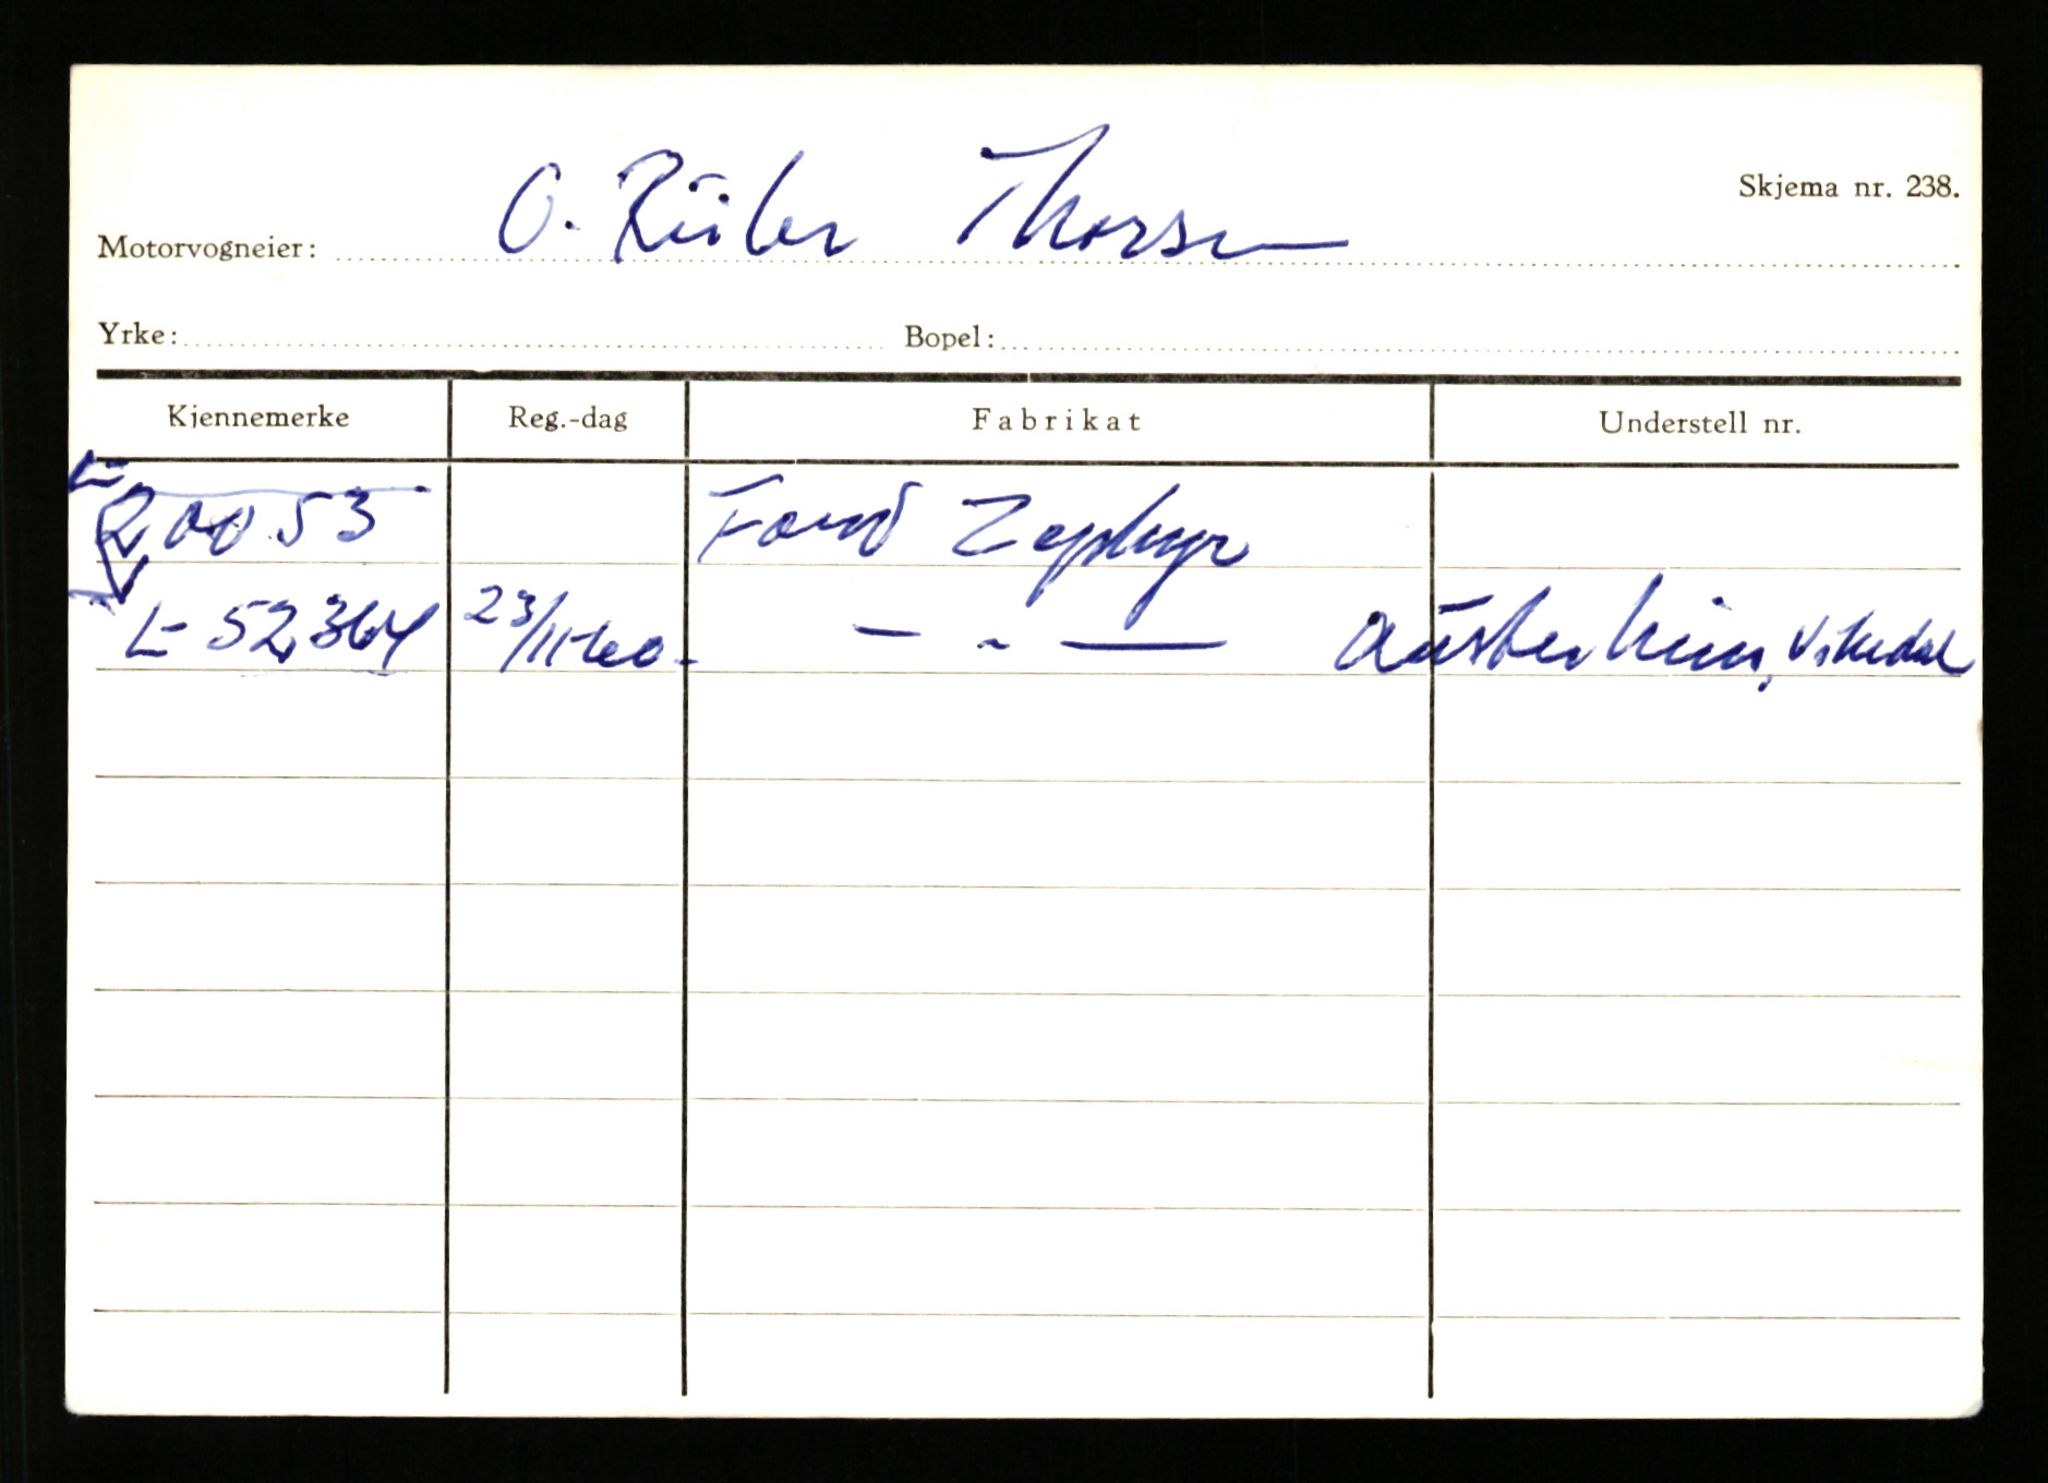 Skjema nr. 238.
Motorvogneier: O. Thorsen
Yrke: Bopel:
Kjennemerke Reg.-dag Fabrikat Understell nr.
L-
20053 Ford Zephyr
L-52364 23/11-60. — - — Austerheim, Vikedal